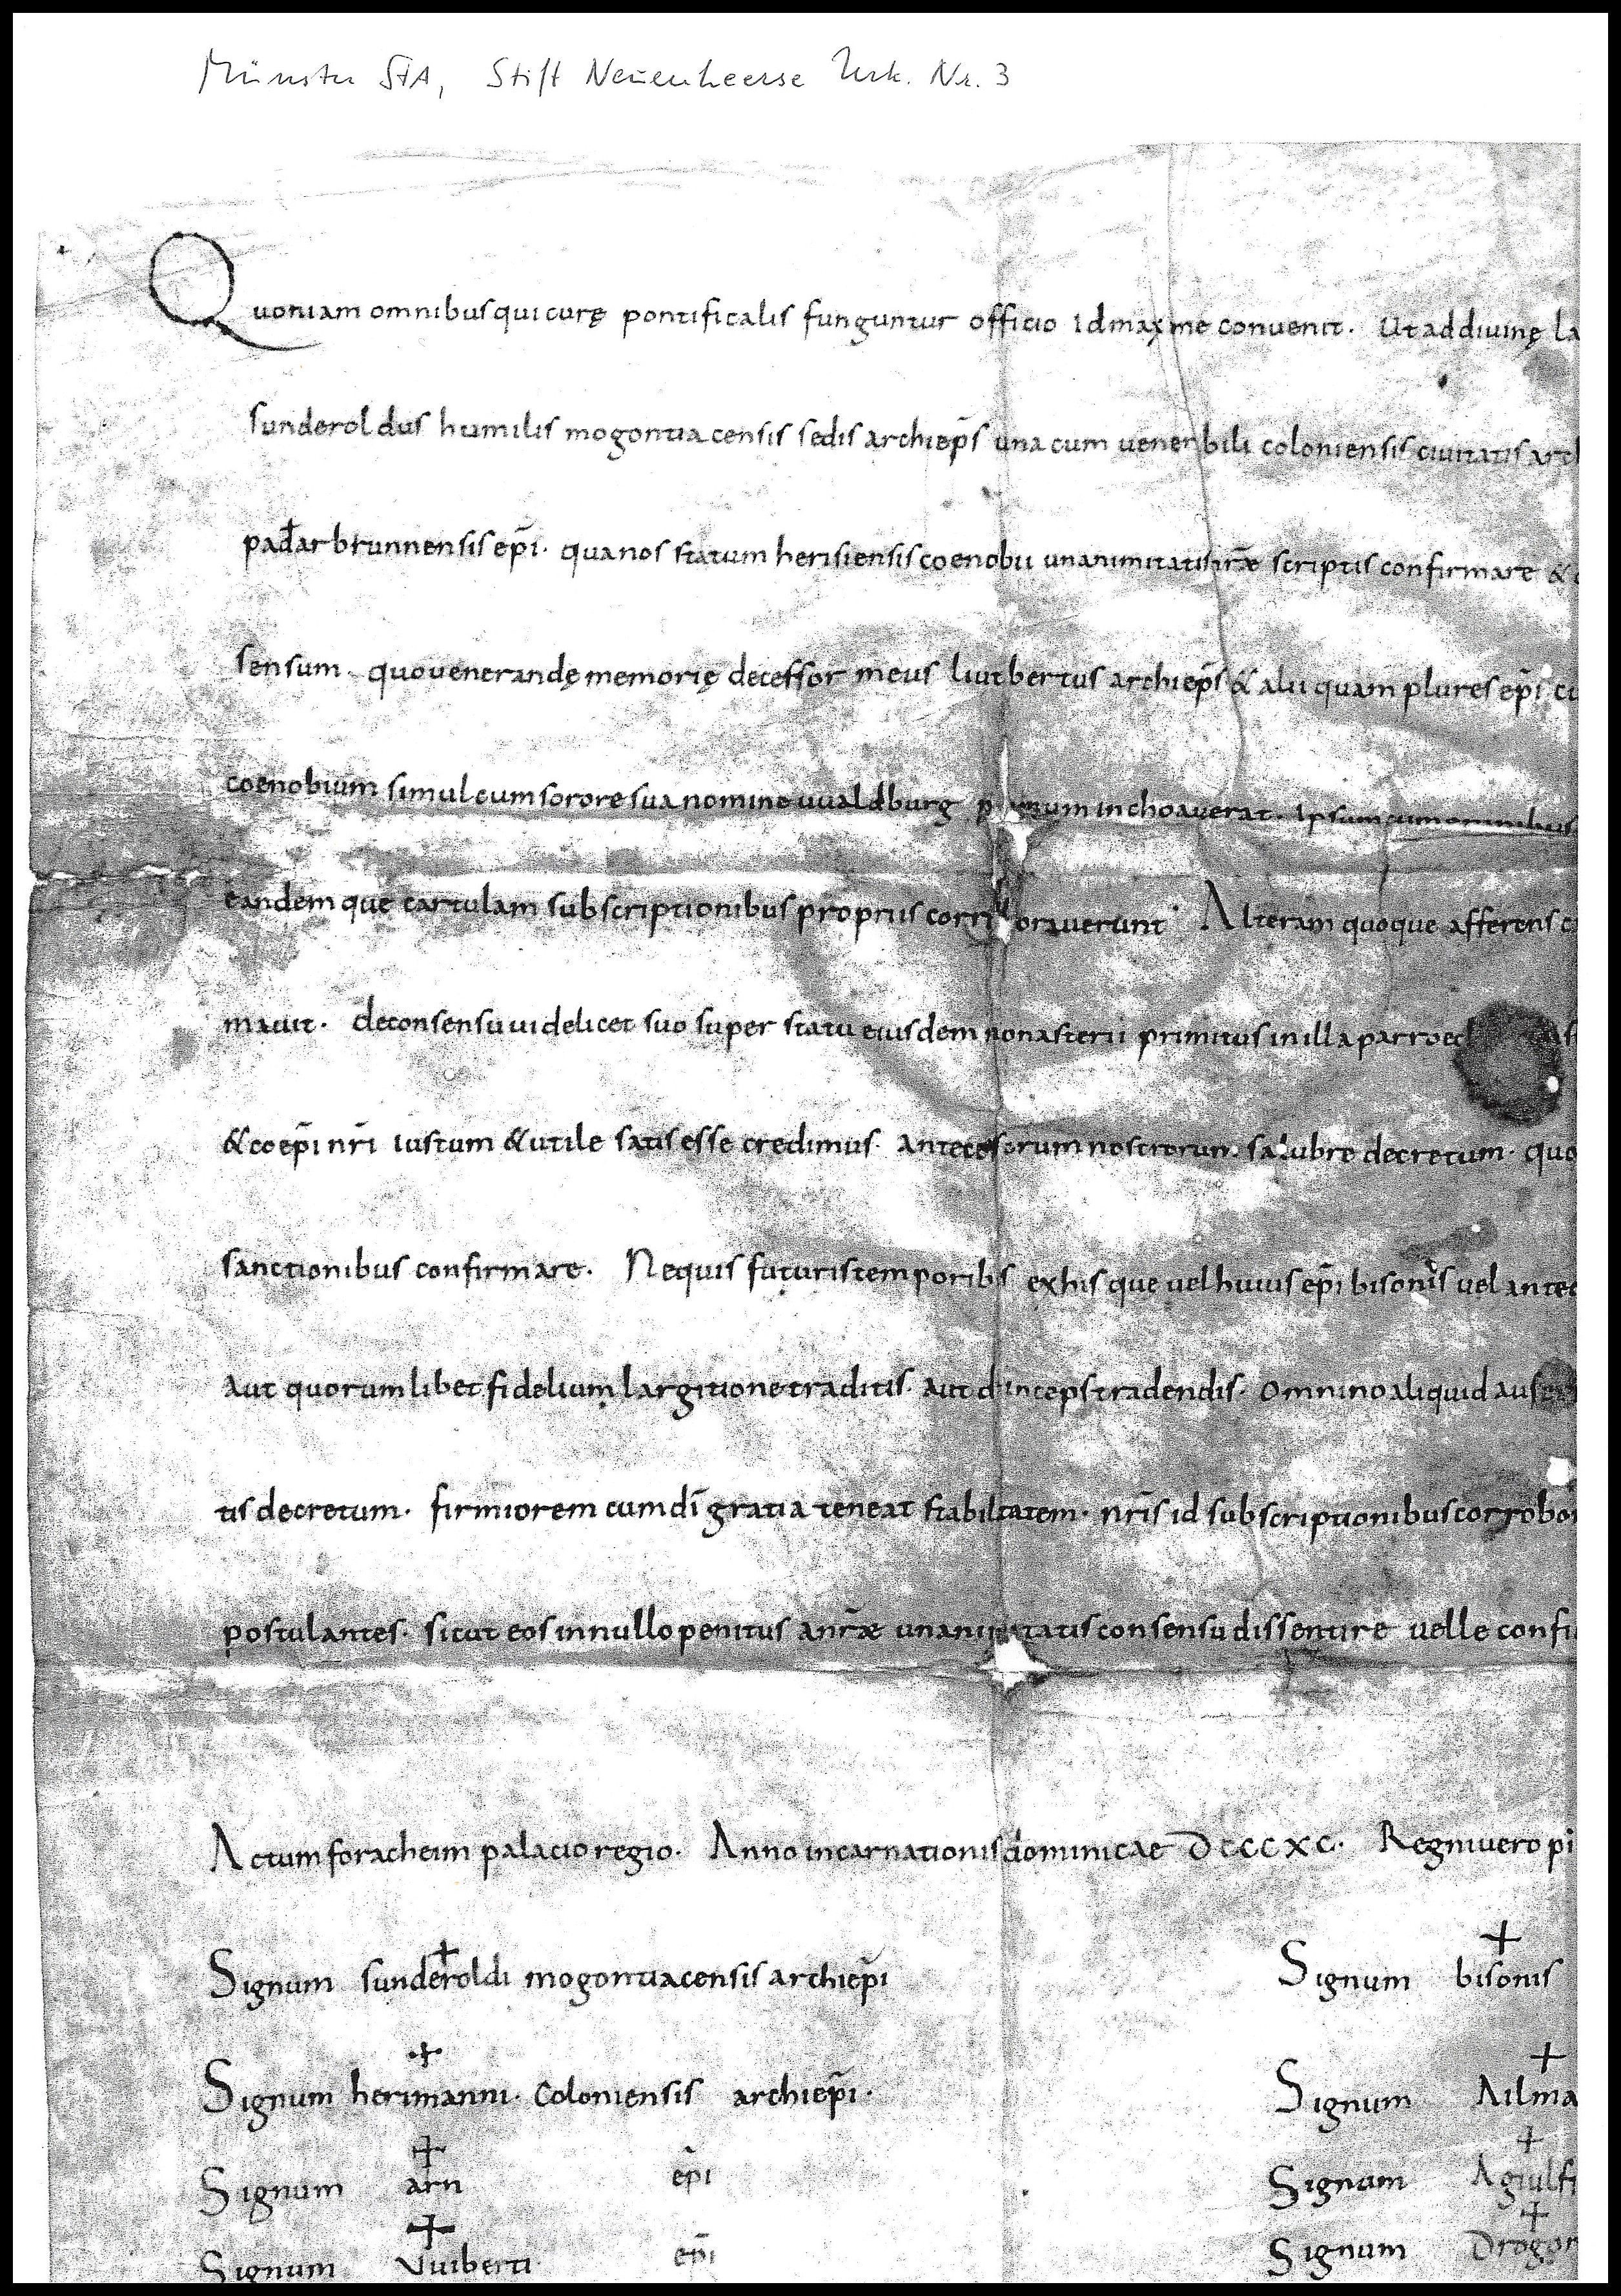 Münster StA, Stift Neuenheerse Urk. Nr. 3
Quoniam omnibus qui curę pontificalis funguntur officio id maxme convenit. Ut ad divinę la
sunderoldus humilis mogontiacensis sedis archiep̄s una cum vener bili coloniensis civitatis arch
pad̄arbrunnensis ep̄i. qua nos statum herisiensis coenobii unanimitatis n̄ræ scriptis confirmare &
sensum. quo venerandę memorię decessor meus liutbertus archiep̄s & alii quam plures ep̄i
coenobium simul cum sorore sua nomine uualdburg inchoaverat. Ipsum cum omnibus
eandemque cartulam subscriptionibus propriis corr oraverunt. Alteram quoque afferens
mavit. de consensu videlicet suo super statu eiusdem monasterii primitus in illa parroec
& coep̄i nr̄i iustum & utile satis esse credimus. Antecessorum nostrorum salubre decretum. quo
sanctionibus confirmare. Ne quis futuris temporibus ex his que vel huius ep̄i bisonis vel antec
Aut quorumlibet fidelium largitione traditis. aut deinceps tradendis. omnino aliquid aus
tis decretum. firmiorem cum dī gratia teneat stabilitatem. nr̄is id subscriptionibus corrobor
postulantes. sicut eos in nullo penitus a nr̄æ unanimitatis consensu dissentire velle confi
Actum foracheim palacio regio. Anno incarnationis dominicae DCCCXC. Regni vero pi
Signum + sunderoldi mogontiacensis archiep̄i
Signum + bisonis
Signum + herimanni. Coloniensis archiep̄i.
Signum + Ailma
Signum + arn ep̄i
Signum + Agiulfi
Signum + Vuiberti ep̄i
Signum + Drogon